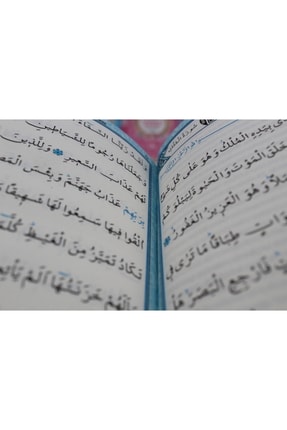 ى بِيَدِهِ الْمُلْكُ وَهُوَ عَلٰى كُلِّ
خَلَقَ الْمَوْتَ وَالْحَيٰوةَ لِيَبْلُوَكُمْ
وَهُوَ الْعَزِيزُ الْغَفُورُ
وَاتٍ طِبَاقًا مَا تَرٰى فِى
فَارْجِعِ الْبَصَرَ هَلْ
لَقَدْ زَيَّنَّا السَّمَاءَ
وَجَعَلْنَاهَا رُجُومًا لِلشَّيَاطِينِ
لَهُمْ عَذَابَ السَّعِيرِ وَلِلَّذِينَ
بِرَبِّهِمْ عَذَابُ جَهَنَّمَ وَبِئْسَ الْمَصِ
اُلْقُوا فِيهَا سَمِعُوا لَهَا شَهِيقًا
تَكَادُ تَمَيَّزُ مِنَ الْغَيْظِ كُلَّمَا
سَاَلَهُمْ خَزَنَتُهَا اَلَمْ يَأْتِكُمْ